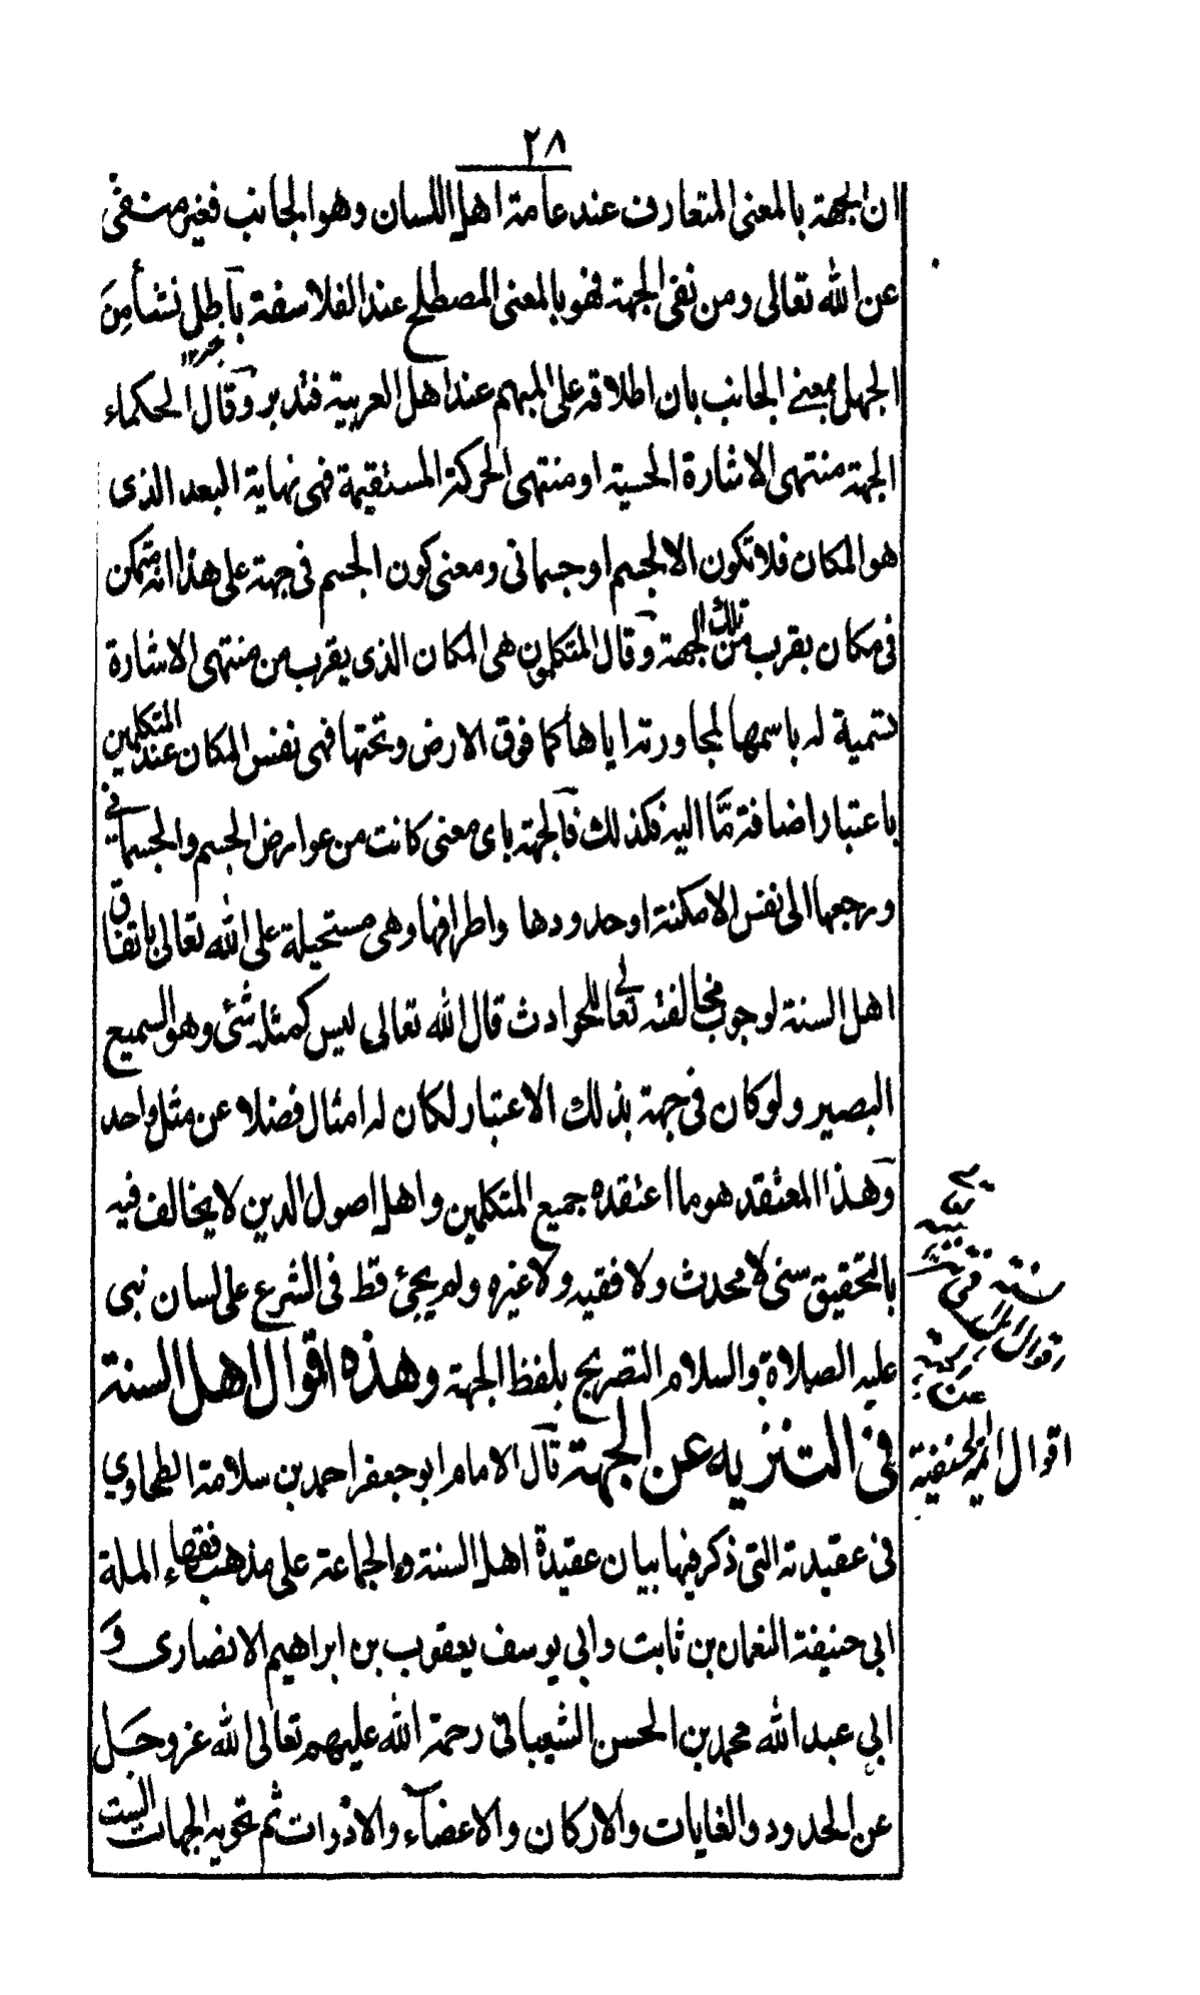 ٢٨
ان الجهة بالمعنى المتعارف عند عامة اهل اللسان وهو الجانب فغير منفى
عن الله تعالى ومن نفى الجهة فهو بالمعنى المصطلح عند الفلاسفة باطل نشأ من
الجهل بمعنى الجانب بان اطلاقه على المبهم عند اهل العربية فتدبر وقال الحكماء
الجهة منتهى الاشارة الحسية او منتهى الحركة المستقيمة فهى نهاية البعد الذى
هو المكان فلا تكون الا لجسم او جسمانى ومعنى كون الجسم فى جهة على هذا انه متمكن
فى مكان بقرب من تلك الجهة وقال المتكلمون هى المكان الذى يقرب من منتهى الاشارة
تسمية له باسمها لمجاورته اياها كما فوق الارض وتحتها فهى نفس المكان عند المتكلمين
باعتبار اضافة مَّا اليه فكذلك فالجهة باى معنى كانت من عوارض الجسم والجسمانى
ورجعها الى نفس الامكنة او حدودها واطرافها وهى مستحيلة على الله تعالى باتفاق
اهل السنة لوجوب مخالفته تعالى للحوادث قال الله تعالى ليس كمثله شئ وهو السميع
البصير ولو كان فى جهة بذلك الاعتبار لكان له امثال فضلا عن مثل واحد
وهذا المعتقد هو ما اعتقده جميع المتكلمين واهل اصول الدين لا يخالف فيه
بالتحقيق سنى لا محدث ولا فقيه ولا غيره ولم يجئ قط فى الشرع على لسان نبى
عليه الصلاة والسلام التصريح بلفظ الجهة وهذه اقوال اهل السنة
فى التنزيه عن الجهة قال الامام ابو جعفر احمد بن سلامة الطحاوي
فى عقيدته التى ذكر فيها بيان عقيدة اهل السنة والجماعة على مذهب فقهاء الملة
ابى حنيفة النعمان بن ثابت وابى يوسف يعقوب بن ابراهيم الانصارى و
ابي عبد الله محمد بن الحسن الشيبانى رحمة الله عليهم تعالى الله عز وجل
عن الحدود والغايات والاركان والاعضاء والادوات ثم تحويه الجهات الست
اقوال ائمة الحنفية